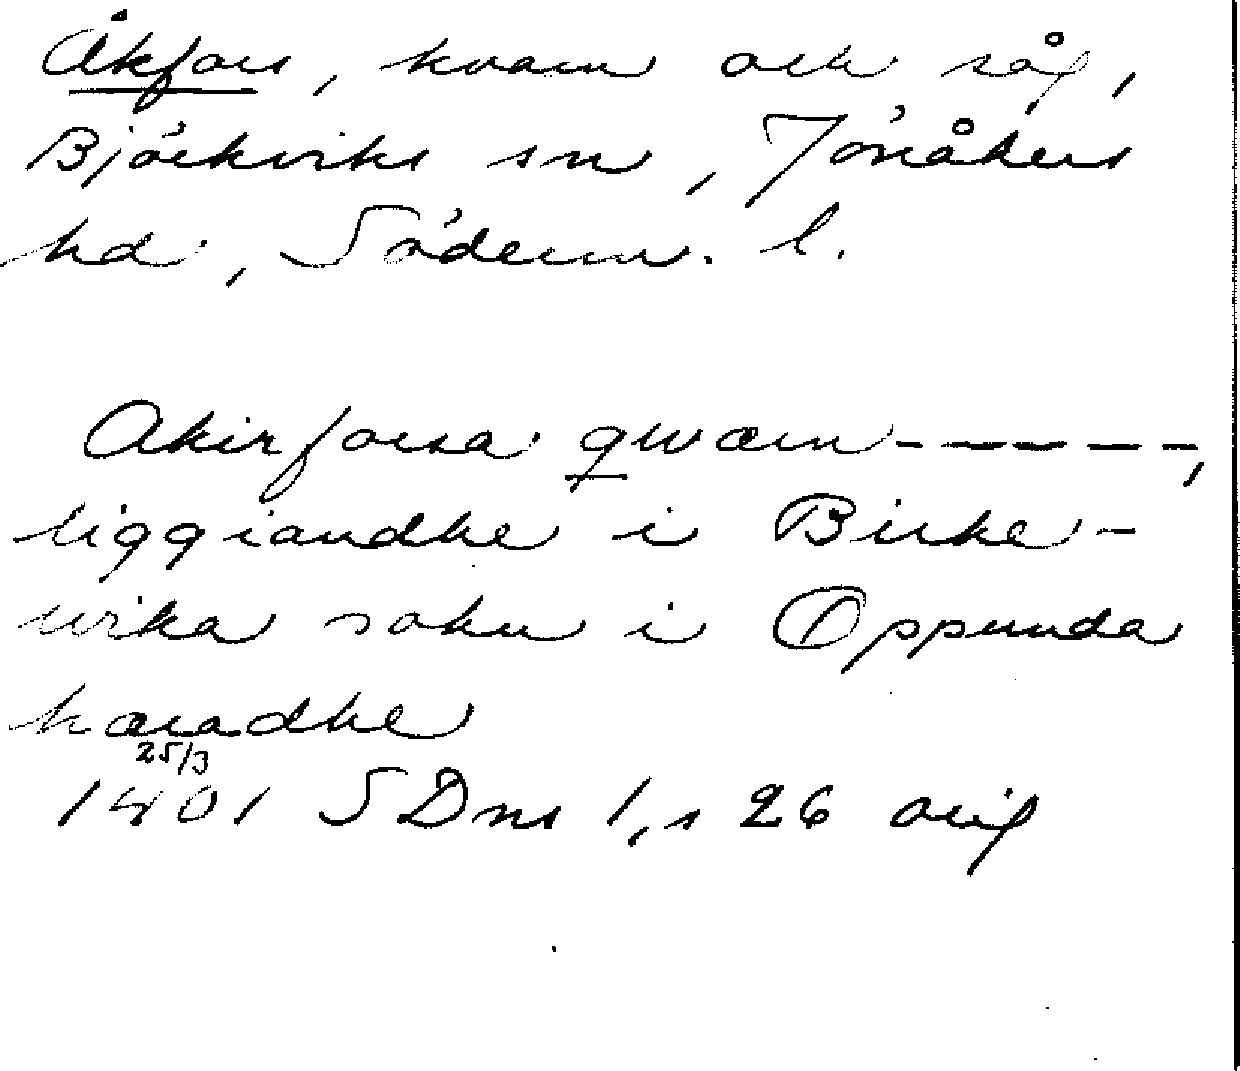 Åkfors, kvarn och såg,
Björkviks sn, Jönåkers
hd, Söderm. l.
Akirforsa qwærn - - - - -,
liggiandhe i Birke-
wika sokn i Oppunda
hæradhe
25/3
1401 SDns 1, s 26 orig